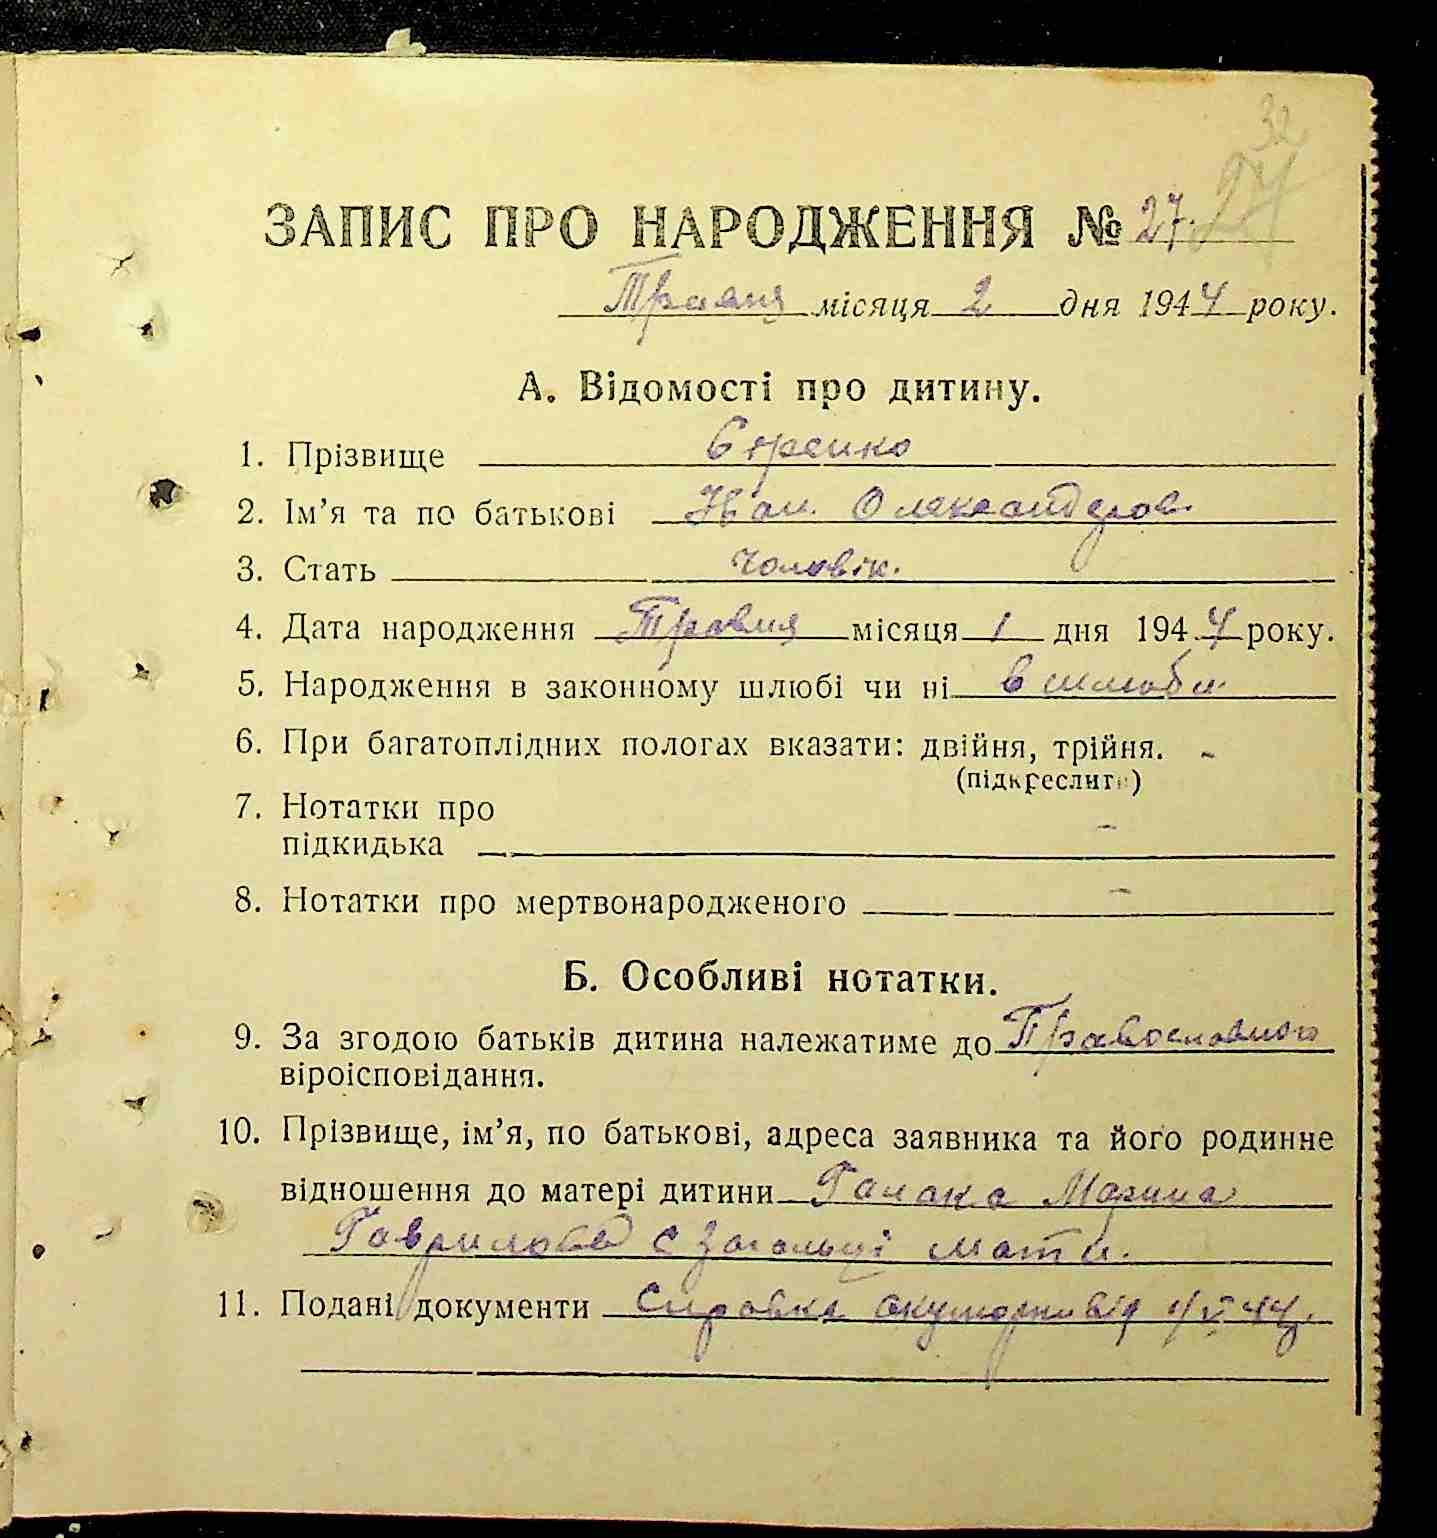 32
27
ЗАПИС ПРО НАРОДЖЕННЯ № 27.
Травня місяця 2 дня 1944 року.
А. Відомості про дитину.
1. Прізвище
2. Ім’я та по батькові Іван. Олександров.
3. Стать чоловік.
4. Дата народження Травня місяця 1 дня 1944 року.
5. Народження в законному шлюбі чи ні в шлюби.
6. При багатоплідних пологах вказати: двійня, трійня. -
(підкреслити)
7. Нотатки про
підкидька -
8. Нотатки про мертвонародженого -
Б. Особливі нотатки.
9. За згодою батьків дитина належатиме до Православного
віроісповідання.
10. Прізвище, ім’я, по батькові, адреса заявника та його родинне
відношення до матері дитини Марина
Гаврилова с мати.
11. Подані документи Справка акушорки від 1/V 44